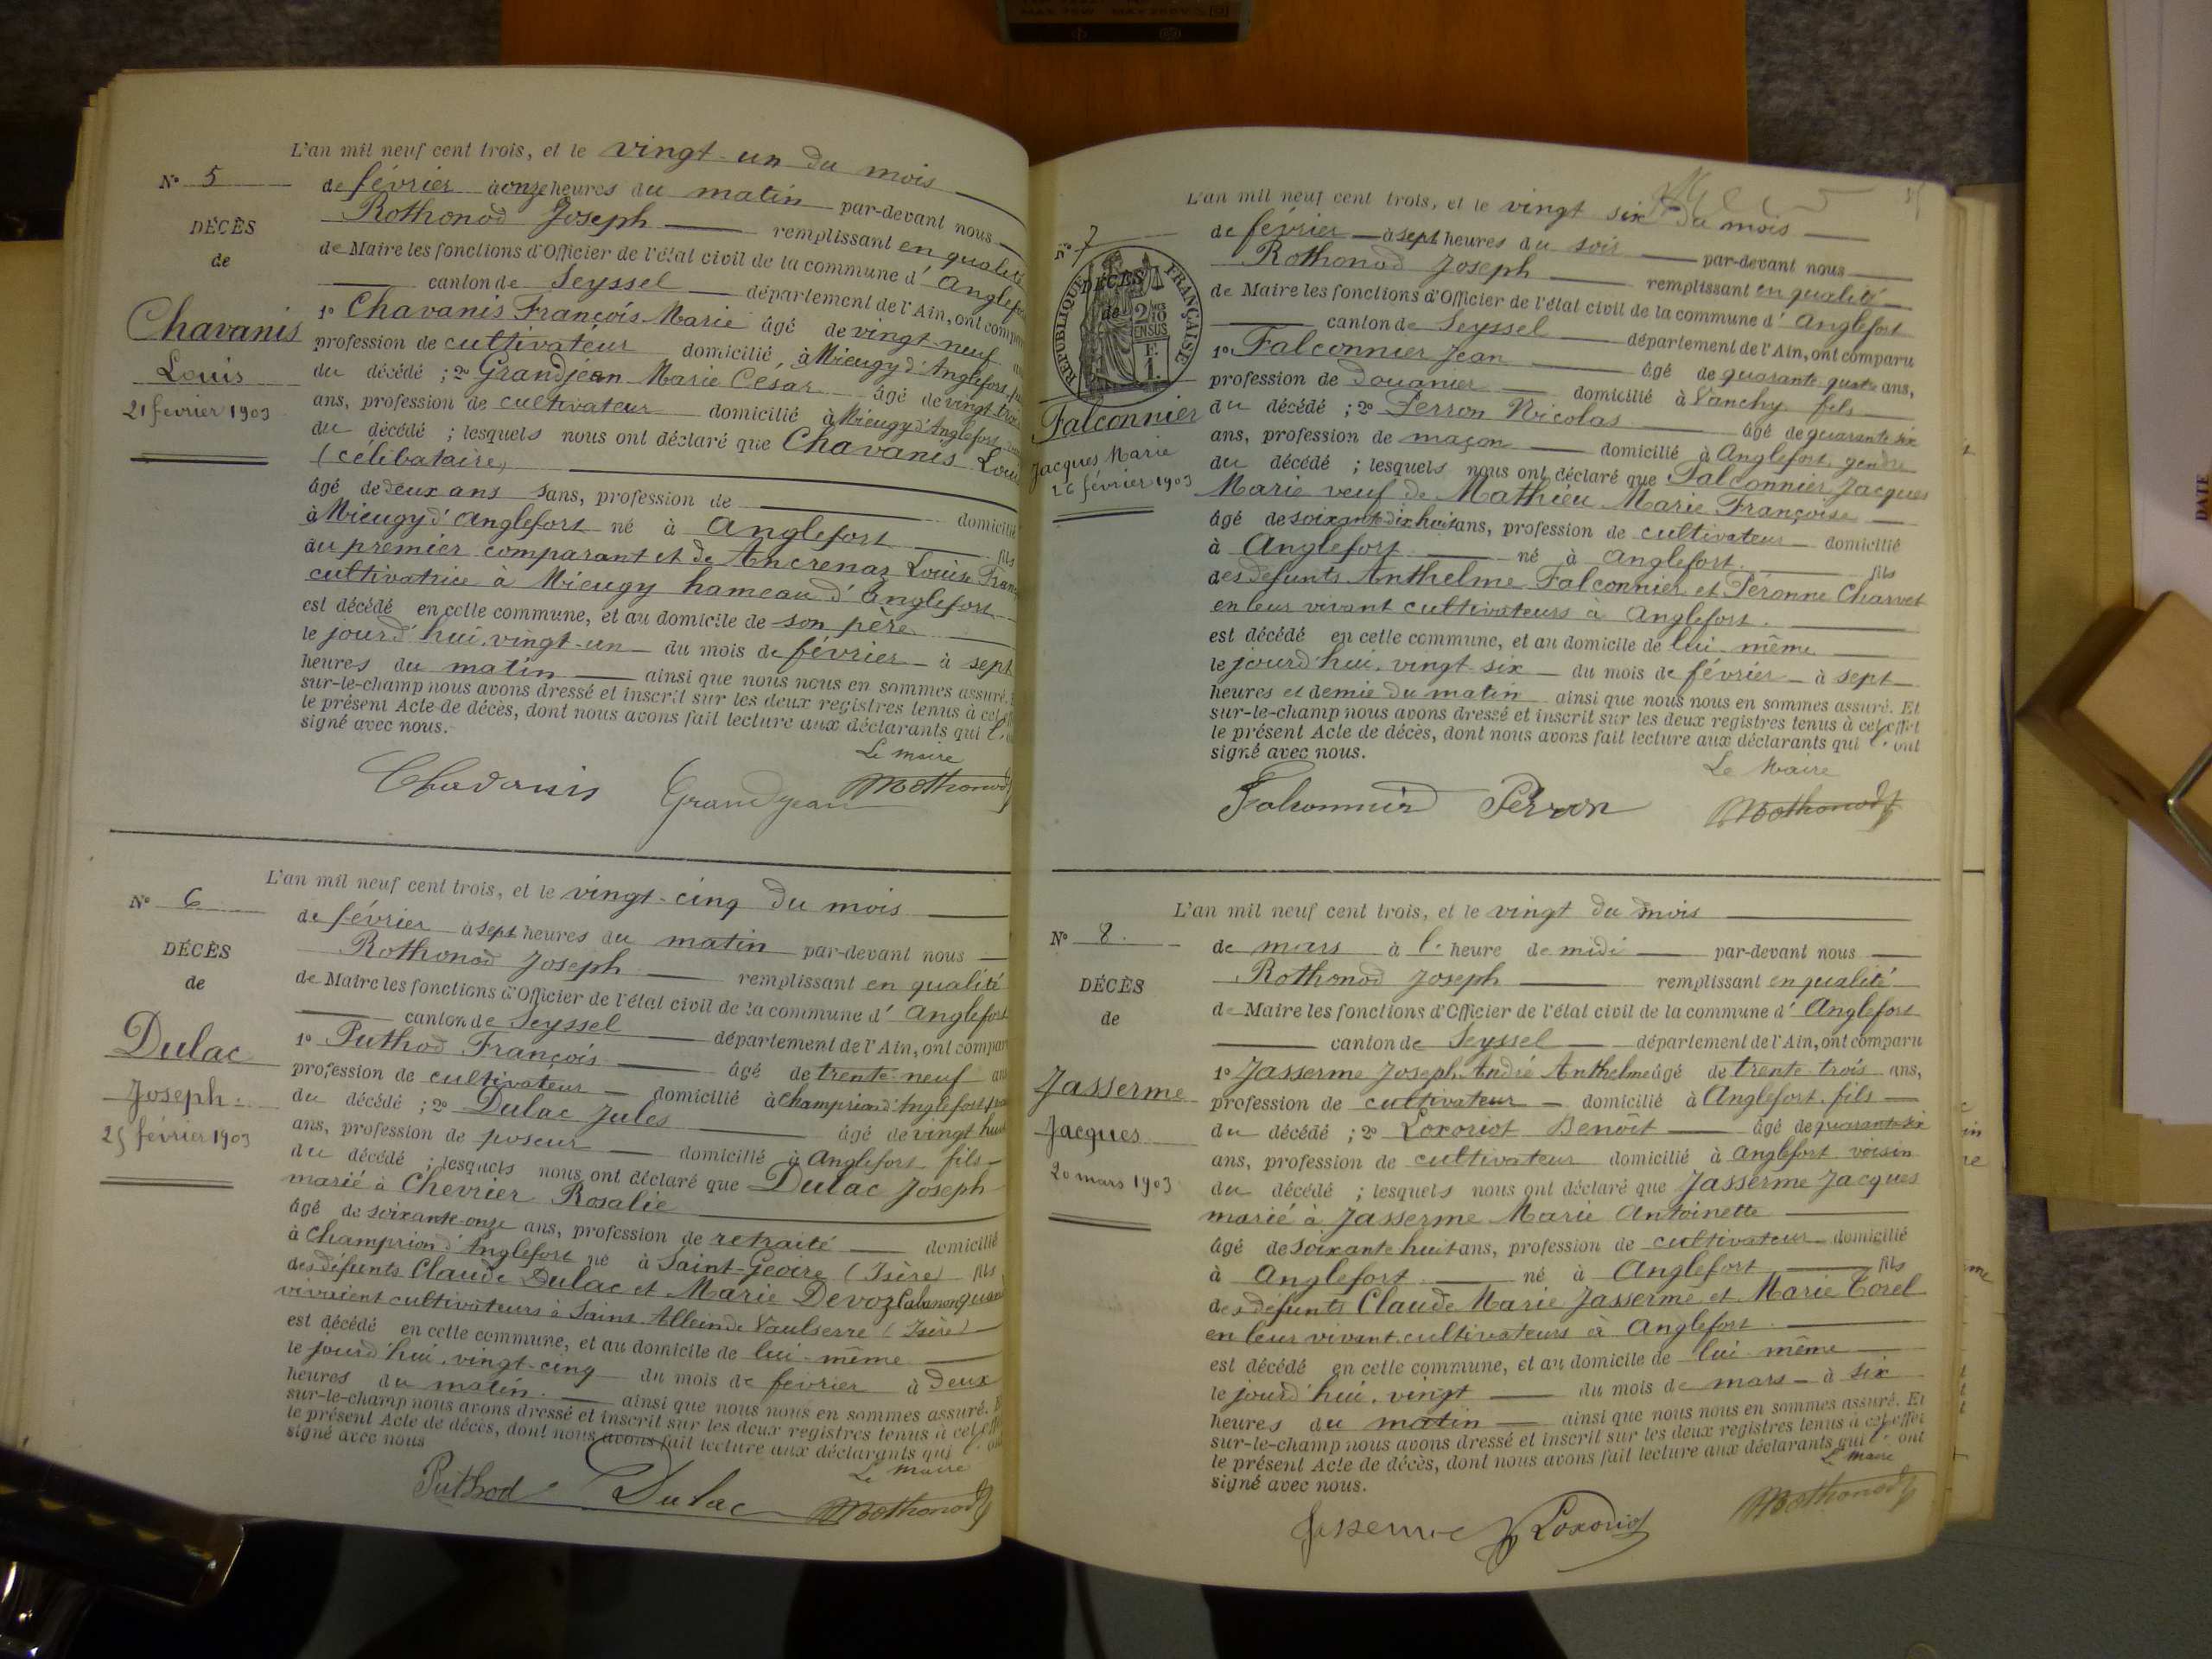 L'an mil neuf cent trois, et le vingt-un du mois
N° 5
de février à onze heures du matin par-devant nous
DÉCÈS
Rothonod Joseph remplissant en qualité
de
de Maire les fonctions d'Officier de l'état civil de la commune d' Anglefort
canton de Seyssel département de l'Ain, ont comparu
Chavanis
1° Chavanis François Marie âgé de vingt-neuf
profession de cultivateur domicilié à Mieugy d'Anglefort
Louis
du décédé ; 2° Grandjean Marie César âgé de vingt-trois
21 février 1903
ans, profession de cultivateur domicilié à Mieugy d'Anglefort
du décédé ; lesquels nous ont déclaré que Chavanis Louis
(célibataire)
âgé de deux ans sans, profession de domicilié
à Mieugy d'Anglefort né à Anglefort fils
au premier comparant et de Ancrenaz Louise
cultivatrice à Mieugy hameau d'Anglefort
est décédé en cette commune, et au domicile de son père
le jourd'hui, vingt-un du mois de février à sept
heures du matin ainsi que nous nous en sommes assuré.
sur-le-champ nous avons dressé et inscrit sur les deux registres tenus à cet
le présent Acte de décès, dont nous avons fait lecture aux déclarants qui l'
signé avec nous.
Le maire
Chavanis Grandjean Rothonod
L'an mil neuf cent trois, et le vingt-cinq du mois
N° 6
de février à sept heures du matin par-devant nous
DÉCÈS
Rothonod Joseph remplissant en qualité
de
de Maire les fonctions d'Officier de l'état civil de la commune d' Anglefort
canton de Seyssel département de l'Ain, ont comparu
Dulac
1° Puthod François âgé de trente-neuf ans
profession de cultivateur domicilié à Champrion d'Anglefort
Joseph
du décédé ; 2° Dulac Jules âgé de vingt huit
25 février 1903
ans, profession de poseur domicilié à Anglefort, fils
du décédé ; lesquels nous ont déclaré que Dulac Joseph
marié à Chevrier Rosalie
âgé de soixante-onze ans, profession de retraité domicilié
à Champrion d'Anglefort né à Saint-Geoire (Isère) fils
des défunts Claude Dulac et Marie Devoz
vivaient cultivateurs à Saint Allein de Vaulserre (Isère)
est décédé en cette commune, et au domicile de lui-même
le jourd'hui, vingt-cinq du mois de février à deux
heures du matin. ainsi que nous nous en sommes assuré.
sur-le-champ nous avons dressé et inscrit sur les deux registres tenus à cet
le présent Acte de décès, dont nous avons fait lecture aux déclarants qui l'
signé avec nous
Le maire
Puthod Dulac Rothonod
L'an mil neuf cent trois, et le vingt six du mois
N° 7
de février à sept heures du soir par-devant nous
DÉCÈS
de
RÉPUBLIQUE FRANÇAISE
2/10 EN SUS
Rothonod Joseph remplissant en qualité
de Maire les fonctions d'Officier de l'état civil de la commune d' Anglefort
canton de Seyssel département de l'Ain, ont comparu
1° Falconnier Jean âgé de quarante-quatre ans,
profession de douanier domicilié à Vanchy fils
Falconnier
du décédé ; 2° Perron Nicolas âgé de quarante six
ans, profession de maçon domicilié à Anglefort, gendre
Jacques Marie
26 février 1903
du décédé ; lesquels nous ont déclaré que Falconnier Jacques
Marie veuf de Mathieu Marie Françoise
âgé de soixante dix huit ans, profession de cultivateur domicilié
à Anglefort né à Anglefort. fils
des défunts Anthelme Falconnier et Péronne Charvet
en leur vivant cultivateurs à Anglefort.
est décédé en cette commune, et au domicile de lui-même
le jourd'hui, vingt-six du mois de février à sept
heures et demie du matin ainsi que nous nous en sommes assuré. Et
sur-le-champ nous avons dressé et inscrit sur les deux registres tenus à cet effet
le présent Acte de décès, dont nous avons fait lecture aux déclarants qui l' ont
signé avec nous.
Le Maire
Falconnier Perron Rothonod
L'an mil neuf cent trois, et le vingt du mois
N° 8.
de mars à l' heure de midi par-devant nous
DÉCÈS
Rothonod Joseph remplissant en qualité
de
de Maire les fonctions d'Officier de l'état civil de la commune d' Anglefort
canton de Seyssel département de l'Ain, ont comparu
Jasserme
1° Jasserme Joseph André Anthelme âgé de trente-trois ans,
profession de cultivateur domicilié à Anglefort, fils
Jacques
du décédé ; 2° Loxoriot Benoît âgé de quarante-six
20 mars 1903
ans, profession de cultivateur domicilié à Anglefort voisin
du décédé ; lesquels nous ont déclaré que Jasserme Jacques
marié à Jasserme Marie Antoinette
âgé de soixante huit ans, profession de cultivateur domicilié
à Anglefort né à Anglefort fils
des défunts Claude Marie Jasserme et Marie Corel
en leur vivant cultivateurs à Anglefort
est décédé en cette commune, et au domicile de lui-même
le jourd'hui, vingt du mois de mars à six
heures du matin ainsi que nous nous en sommes assuré. Et
sur-le-champ nous avons dressé et inscrit sur les deux registres tenus à cet effet
le présent Acte de décès, dont nous avons fait lecture aux déclarants qui l' ont
signé avec nous.
Le maire
Jasserme Loxoriot Rothonod
DATE